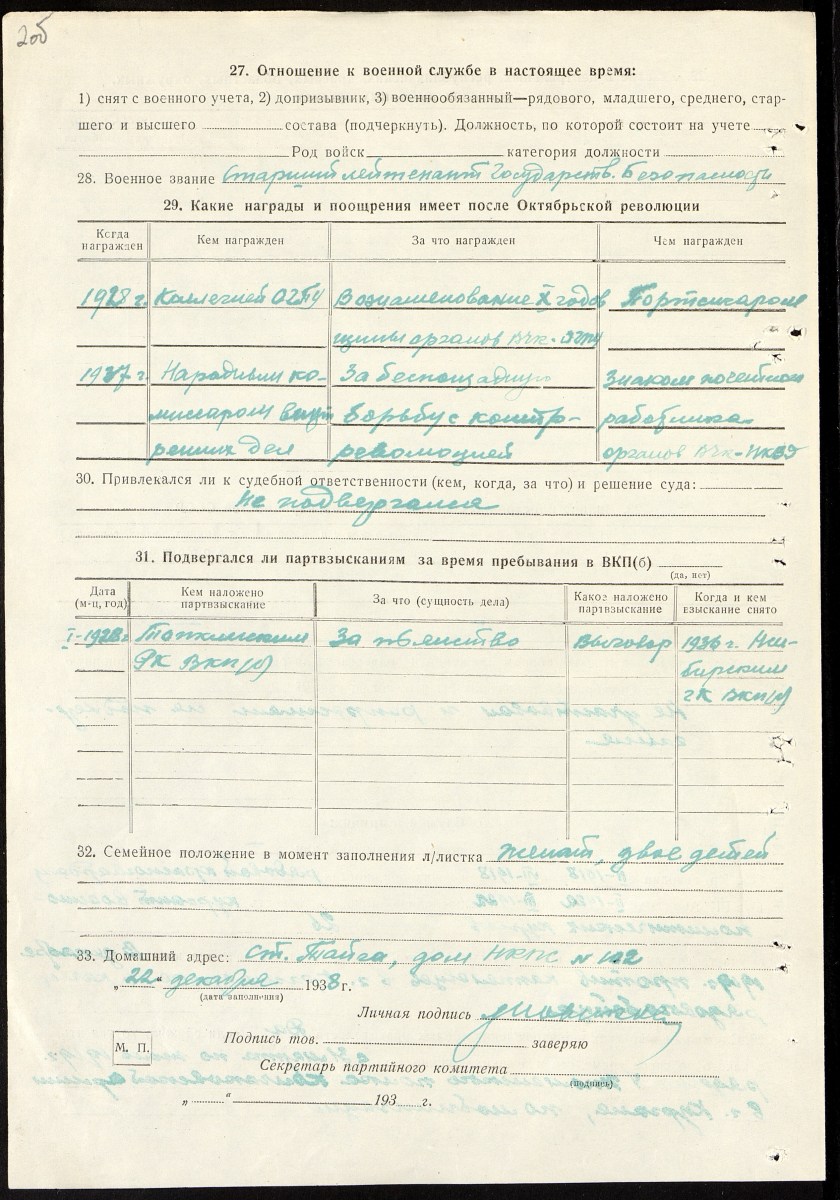 20б
27. Отношение к военной службе в настоящее время:
1) снят с военного учета, 2) допризывник, 3) военнообязанный—рядового, младшего, среднего, стар-
шего и высшего состава (подчеркнуть). Должность, по которой состоит на учете
Род войск категория должности
28. Военное звание Старший лейтенант Государств. Безопасности
29. Какие награды и поощрения имеет после Октябрьской революции
Когда награжден Кем награжден За что награжден Чем награжден
1928 г. Коллегией ОГПУ В ознаменование X годов Портсигаром
щины органов ВЧК-ОГПУ
1937 г. Народным ко- За беспощадную Знаком почетного
миссаром внут борьбу с контр- работника
ренних дел революцией органов ВЧК-НКВД
30. Привлекался ли к судебной ответственности (кем, когда, за что) и решение суда:
Не подвергался
31. Подвергался ли партвзысканиям за время пребывания в ВКП(б)
(да, нет)
Дата (м-ц, год) Кем наложено партвзыскание За что (сущность дела) Какое наложено партвзыскание Когда и кем взыскание снято
I-1928г За пьянство Выговор 1936 г.
РК ВКП(б) бирским
ГК ВКП(б)
32. Семейное положение в момент заполнения л/листка женат, двое детей
33. Домашний адрес: ст. Тайга, дом НКПС N 122
„22“ декабря 1938 г.
(дата заполнения)
Личная подпись
М. П.
Подпись тов. заверяю
Секретарь партийного комитета
(подпись)
„ “ 193 г.